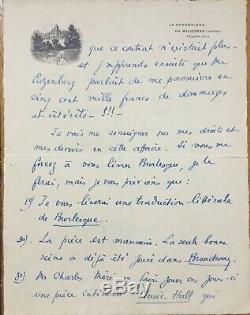 LA RENARDIÈRE
PAR MALICORNE (SARTHE)
TELEPH. N° 2
que ce contrat n'existait plus -
et j'apprends ensuite que Mr
Rozenberg parlait de me poursuivre en
cinq cent mille francs de dommages
et intérêts - !!! -
Je vais me renseigner sur mes droits et
mes devoirs en cette affaire. Si vous me
forcez à vous livrer Burlesque, je le
ferai, mais je vous préviens que :
1°) Je vous livrerai une traduction littérale
de Burlesque.
2°) La pièce est mauvaise. La seule bonne
scène a déjà été jouée dans Broadway.
3°) Mr Charles Méré va faire jouer ces jours-ci
une pièce intitulée Hall qui